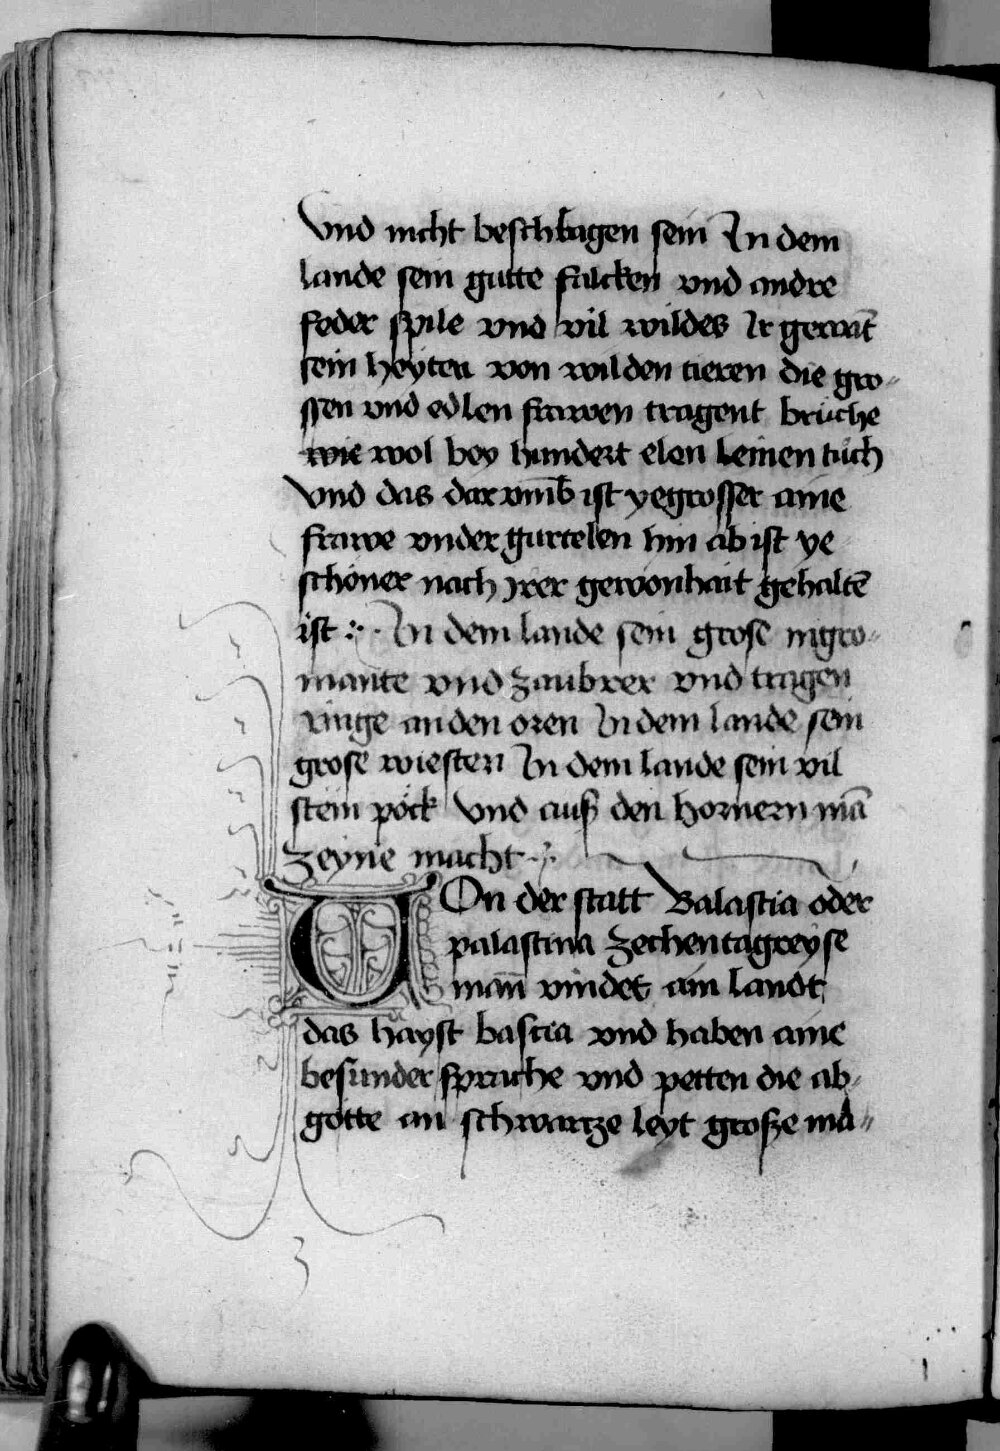 vnd nicht beschlagen sein In dem
lande sein gutte falcken vnd andre
feder spile vnd vil wildes Ir gewāt
sein heyten von wilden tieren die gro-
ssen vnd edlen frawen tragent brüche
wie wol bey hundert elen leinen tůch
vnd das dar vmb ist ye grosser aine
frawe vnder gurtelen hin ab ist ye
schöner nach jrer gewonhait gehaltē
ist In dem lande sein grose nigro-
mante vnd zaubrer vnd tragen
ringe an den oren In dem lande sein
grose wiesten In dem lande sein vil
stein pöck vnd auß den hornern mā
zeyne macht
Uon der statt Balastia oder
palastina zechen tagreyse
mañ vindet ain landt
das hayst bastia vnd haben aine
besunder sprache vnd petten die ab-
götte an schwartze leyt große mä-